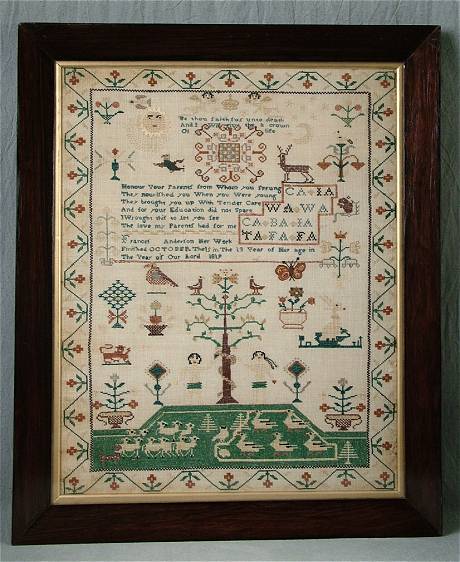 Be thou faithfus unto death
And I will give thee a crown
Of life
Honour Your Parents from Whom you sprung
They nourished you When you Were young
They brought you up With Tender Care
And for your Education did not Spare
I Wrought this to let you see
The love my Parents had for me
Francis Anderson Her Work
Finished OCTOBER The in the 13 Year of Her age in
The Year of Our Lord 1819
CA IA
WA WA
CA BA IA
TA FA FA